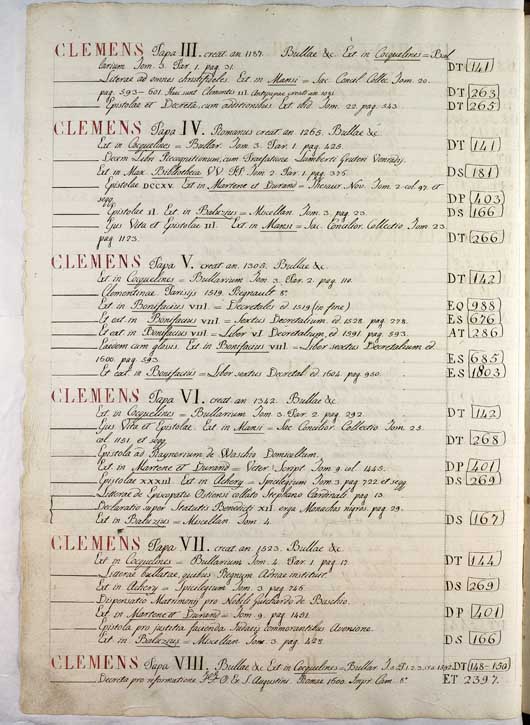 CLEMENS Papa III. creat. an 1187. Bullae &c. Ext in Cocquelines = Bul
larium Tom. 3. Par. 1. pag. 31. DT 141
Literae ad omnes christifideles. Ext in Mansi = Sac. Concil. Collec. Tom. 20.
pag. 593-601. DT 263
Epistolae et Decreta, cum additionibus. Ext ibid. Tom. 22. pag. 543. DT 265
CLEMENS Papa IV. Romanus creat an 1265. Bullae &c.
Ext in Cocquelines = Bullar. Tom. 3. Par. 1. pag. 425. DT 141
Decem Libri Recognitionum, cum Praefatione Lamberti Gruteri Venradij.
Ext in Max. Bibliotheca VV. PP. Tom 2. Par. 1. pag. 375. DS 181
Epistolae DCCXV. Ext in Martene et Durand = Thesaur. Nov. Tom. 2. col. 97. et
seqq. DP 403
Epistolae II. Ext in Baluzius = Miscellan. Tom. 3. pag. 23. DS 166
Ejus Vita et Epistolae III. Ext in Mansi = Sac. Concilior. Collectio Tom. 23.
pag. 1123. DT 266
CLEMENS Papa V. creat an. 1305. Bullae &c.
Ext in Cocquelines = Bullarium Tom. 3. Par. 2. pag. 110. DT 142
Clementinae Parisijs 1519. Regnault 8.°
Ext in Bonifacius VIII = Decretales ed 1519 (in fine) EO 988
Et ext in Bonifacius VIII = Sextus Decretalium ed 1528. pag. 278. ES 676
Et ext in Bonifacius VIII = Liber VI Decretalium, ed 1591. pag. 593. AT 286
Eaedem cum glosis. Ext in Bonifacius VIII = Liber sextus Decretalium ed
1600. pag. 593. ES 685
Et ext in Bonifacius = Liber sextus Decretal. ed 1604. pag. 950. ES 1803
CLEMENS Papa VI. creat an. 1342. Bullae &c.
Ext in Cocquelines = Bullarium Tom. 3. Par. 2. pag. 292. DT 142
Ejus Vita et Epistolae. Ext in Mansi = Sac. Concilior. Collectio Tom. 25.
col. 1151. et seqq. DT 268
Epistola ad Raynerium de Waschio Domicellum.
Ext in Martene et Durand = Veter. Script. Tom 9. col. 1445. DP 401
Epistolae XXXIII. Ext in Achery = Spicilegium Tom. 3. pag. 722. et seqq. DS 269
Litterae de Episcopatu Ostiensi collato Stephano Cardinali pag. 13.
Declaratio super Statutis Benedicti XII erga Monachos nigros. pag. 29.
Ext in Baluzius = Miscellan. Tom. 4. DS 167
CLEMENS Papa VII. creat an 1523. Bullae &c.
Ext in Cocquelines = Bullarium Tom. 4. Par. 1. pag. 17. DT 144
Literae bullatae, quibus Regnum Adriae instituit.
Ext in Achery = Spicilegium Tom. 3. pag. 746. DS 269
Dispensatio Matrimonij pro Nobili Guichardo de Baschio.
Ext in Martene et Durand = Tom. 9. pag. 1451. DP 401
Epistola pro justitia facienda Judaeis commorantibus Avenione.
Ext in Baluzius = Miscellan. Tom. 3. pag. 428. DS 166
CLEMENS Papa VIII. Bullae &c. Ext in Cocquelines = Bullar. DT 148-150
Decreta pro reformatione O. Er. S. Augustini. Romae 1600. Impr. Cam. 8.° ET 2397.